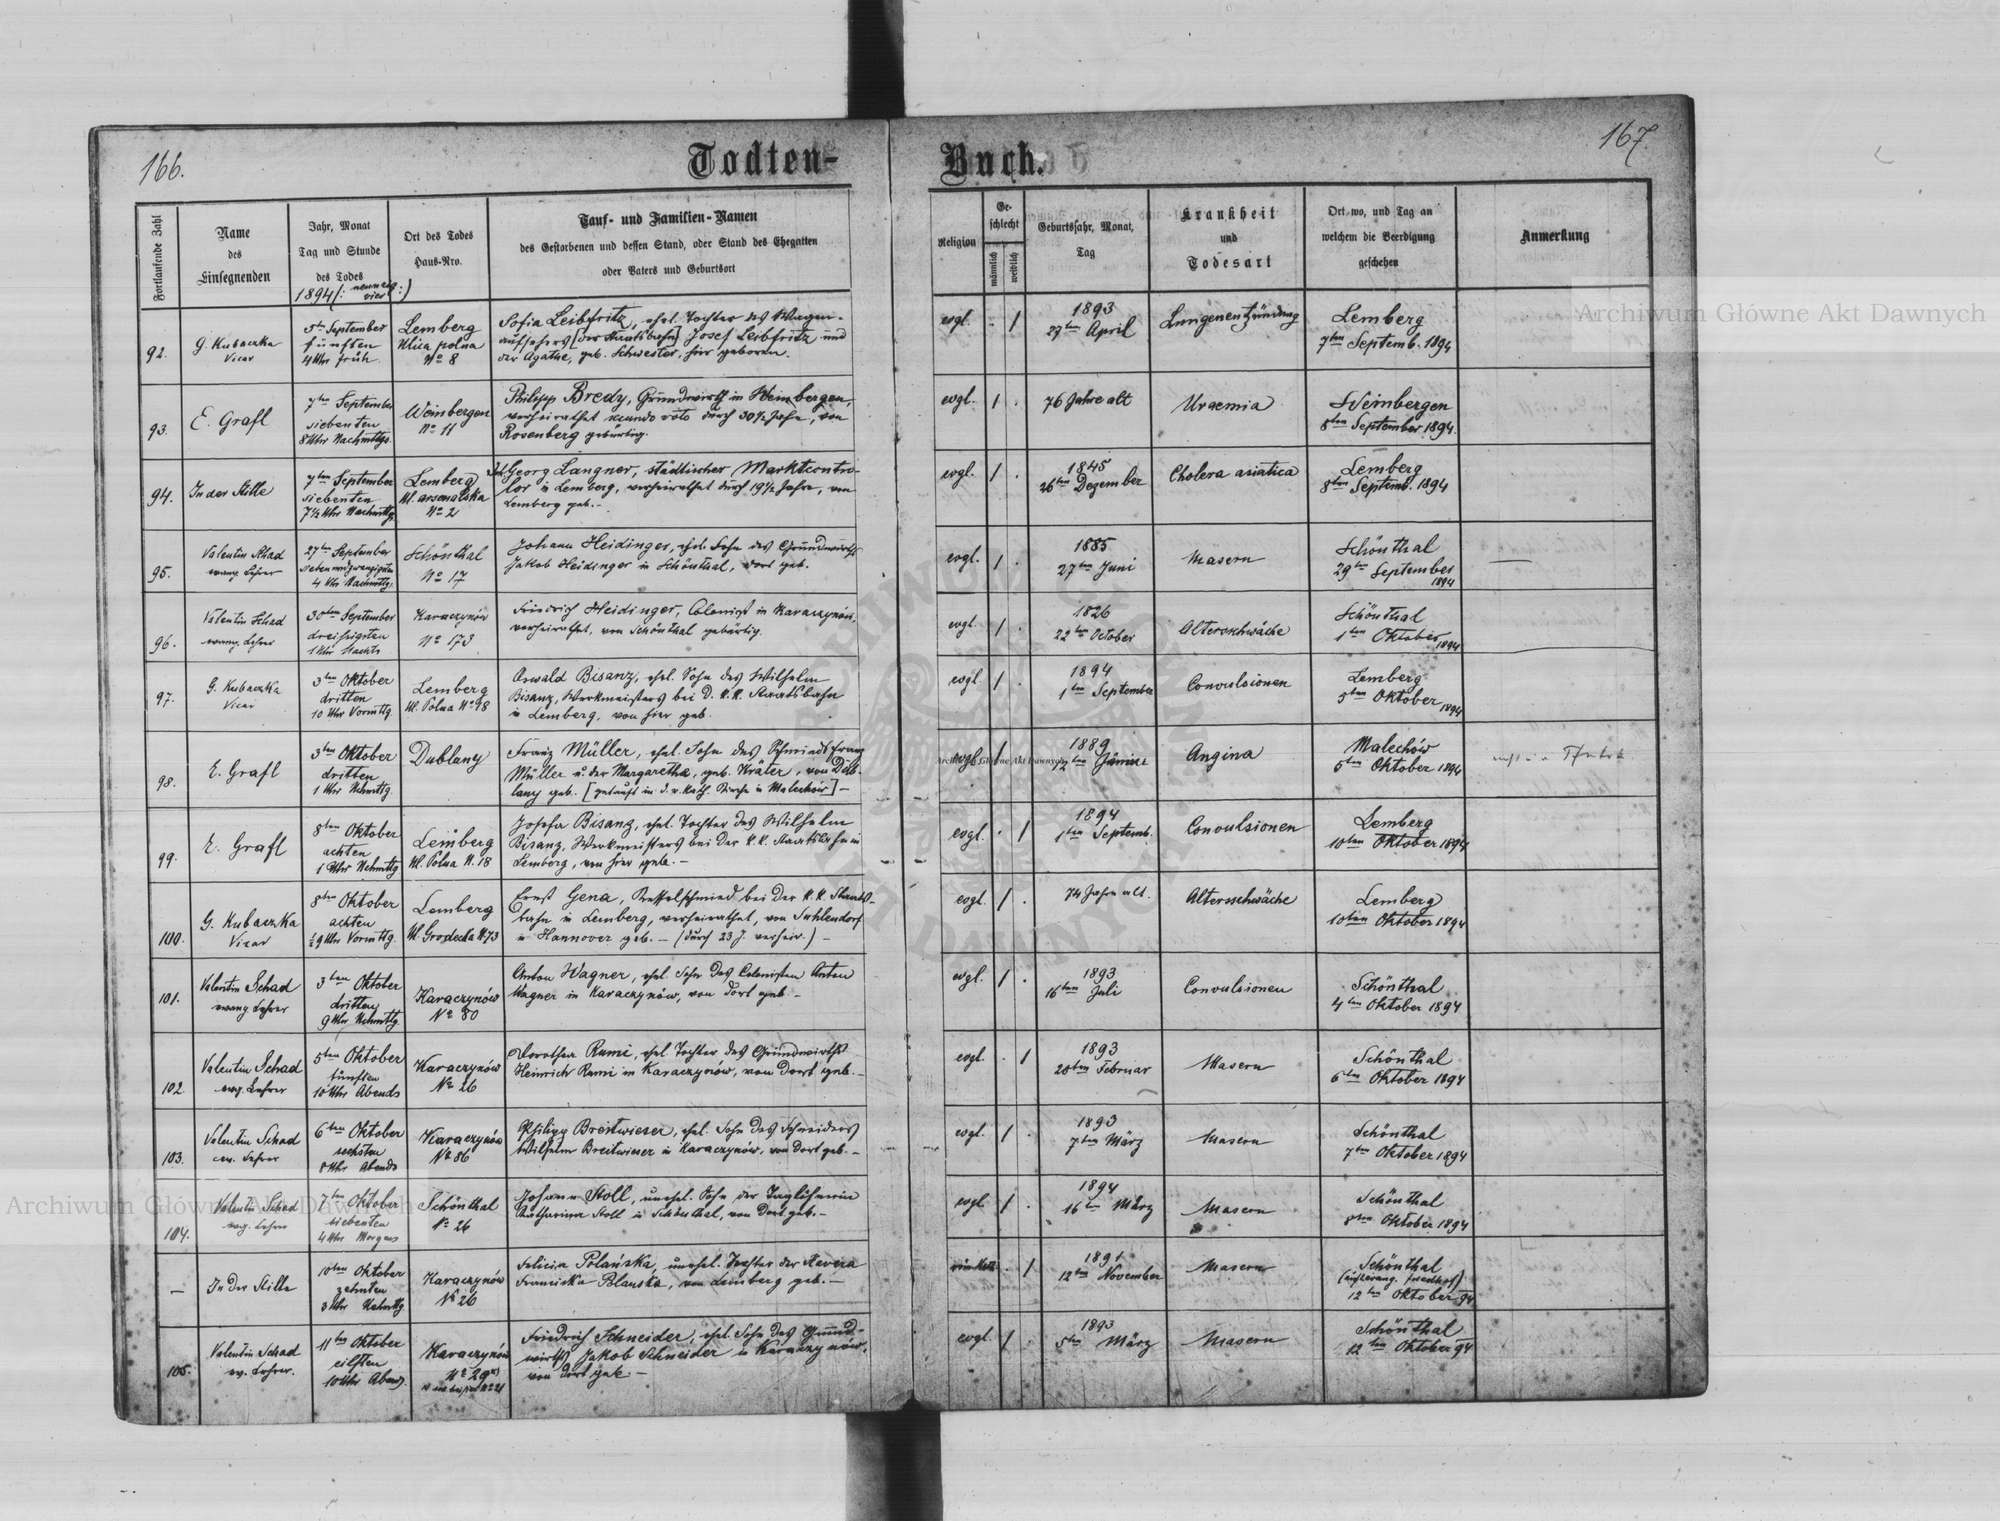 166.
Todten-
Fortlaufende Zahl
Name
des
Einsegnenden
Jahr, Monat
Tag und Stunde
des Todes
1894 (: neunzig vier :)
Ort des Todes
Haus-Nro.
Tauf- und Familien-Namen
des Gestorbenen und dessen Stand, oder Stand des Ehegatten
oder Vaters und Geburtsort
92.
G. Kubaczka
Vicar
5ten September
fünften
4 Uhr früh
Lemberg
Ulica polna
No 8
Sofia Leibfritz, ehel. Tochter des Wagen-
aufsehers [der Staatsbahn] Josef Leibfritz und
der Agathe, geb. Schwester, hier geboren.
93.
E. Grafl
7ten September
siebenten
8 Uhr Nachmttgs.
Weinbergen
No 11
Philipp Bredy, Grundwirth in Weinbergen,
verheirathet secundo voto durch 30½ Jahre, von
Rosenberg gebürtig.
94.
In der Stille
7ten September
siebenten
7½ Uhr Nachmttg.
Lemberg
Ul. arsenalska
No 2
Joh. Georg Langner, städtischer Marktcontro-
lor in Lemberg, verheirathet durch 19½ Jahre, von
Lemberg geb. -
95.
Valentin Schad
evang. Lehrer
27ten September
siebenundzwanzigsten
4 Uhr Nachmttg.
Schönthal
No 17
Johann Heidinger, ehel. Sohn des Grundwirths
Jakob Heidinger in Schönthal, dort geb.
96.
Valentin Schad
evang. Lehrer
30ten September
dreissigsten
1 Uhr Nachts
Karaczynów
No 173
Friedrich Heidinger, Colonist in Karaczynów,
verheirathet, von Schönthal gebürtig.
97.
G. Kubaczka
Vicar
3ten Oktober
dritten
10 Uhr Vormttg.
Lemberg
Ul. Polna No 98
Oswald Bisanz, ehel. Sohn des Wilhelm
Bisanz, Werkmeisters bei d. k. k. Staatsbahn
in Lemberg, von hier geb.
98.
E. Grafl
3ten Oktober
dritten
1 Uhr Nchmttg.
Dublany
Franz Müller, ehel. Sohn des Schmieds Franz
Müller u. der Margaretha, geb. Kräter, von Dub-
lany geb. [getauft in d. r. kath. Kirche in Malechow] -
99.
E. Grafl
8ten Oktober
achten
1 Uhr Nchmttg
Lemberg
Ul. Polna N. 18
Josefa Bisanz, ehel. Tochter des Wilhelm
Bisanz, Werkmeisters bei der k. k. Staatsbahn in
Lemberg, von hier geb. -
100.
G. Kubaczka
Vicar
8ten Oktober
achten
½9 Uhr Vormttg.
Lemberg
Ul. Grodecka N. 73
Ernst Gena, Kesselschmied bei der k. k. Staats-
bahn in Lemberg, verheirathet, von Suhlendorf
in Hannover geb. - (durch 23 J. verheir.) -
101.
Valentin Schad
evang. Lehrer
3ten Oktober
dritten
9 Uhr Nchmttg.
Karaczynów
No 80
Anton Wagner, ehel. Sohn des Colonisten Anton
Wagner in Karaczynów, von dort geb. -
102.
Valentin Schad
evg. Lehrer
5ten Oktober
fünften
10 Uhr Abends
Karaczynów
No 26
Dorothea Rumi, ehel. Tochter des Grundwirths
Heinrich Rumi in Karaczynów, von dort geb. -
103.
Valentin Schad
ev. Lehrer
6ten Oktober
sechsten
8 Uhr Abends
Karaczynów
No 86
Philipp Breitwieser, ehel. Sohn des Schneiders
Wilhelm Breitwieser in Karaczynów, von dort geb. -
104.
Valentin Schad
evg. Lehrer
7ten Oktober
siebenten
4 Uhr Morgens
Schönthal
No 26
Johann Stoll, unehel. Sohn der Taglöhnerin
Katharina Stoll in Schönthal, von dort geb. -
—
In der Stille
10ten Oktober
zehnten
3 Uhr Nchmttg
Karaczynów
No 26
Felicia Polańska, unehel. Tochter der
Franciska Polanska, von Lemberg geb. -
105.
Valentin Schad
ev. Lehrer.
11ten Oktober
eilften
10 Uhr Abends
Karaczynów
No 29
Friedrich Schneider, ehel. Sohn des Grund-
wirths Jakob Schneider in Karaczynów,
von dort geb. -
167
Buch.
Religion
Ge-
schlecht
männlich
weiblich
Geburtsjahr, Monat,
Tag
Krankheit
und
Todesart
Ort, wo, und Tag an
welchem die Beerdigung
geschehen
Anmerkung
evgl.
1893
27ten April
Lungenentzündung
Lemberg
7ten Septemb. 1894
evgl.
76 Jahre alt
Uraemia
Weinbergen
8ten September 1894.
evgl.
1845
26ten Dezember
Cholera asiatica
Lemberg
8ten Septemb. 1894
evgl.
1885
27ten Juni
Masern
Schönthal
29ten September
1894
evgl.
1826
22ten October
Altersschwäche
Schönthal
1ten Oktober
1894
evgl.
1894
1ten September
Convulsionen
Lemberg
5ten Oktober
1894
evgl.
1889
12ten Jänner
Angina
Malechów
5ten Oktober 1894
evgl.
1894
1ten Septemb.
Convulsionen
Lemberg
10ten Oktober 1894
evgl.
74 Jahre alt.
Altersschwäche
Lemberg
10ten Oktober 1894
evgl.
1893
16ten Juli
Convulsionen
Schönthal
4ten Oktober 1894
evgl.
1893
20ten Februar
Masern
Schönthal
6ten Oktober 1894
evgl.
1893
7ten März
Masern
Schönthal
7ten Oktober 1894
evgl.
1894
16ten März
Masern
Schönthal
8ten Oktober 1894
röm. kath.
1891
12ten November
Masern
Schönthal
(auf evang. Friedhof)
12ten Oktober 94
evgl.
1893
5ten März
Masern
Schönthal
12ten Oktober 94
Archiwum Główne Akt Dawnych
Archiwum Główne Akt Dawnych
Archiwum Główne Akt Dawnych